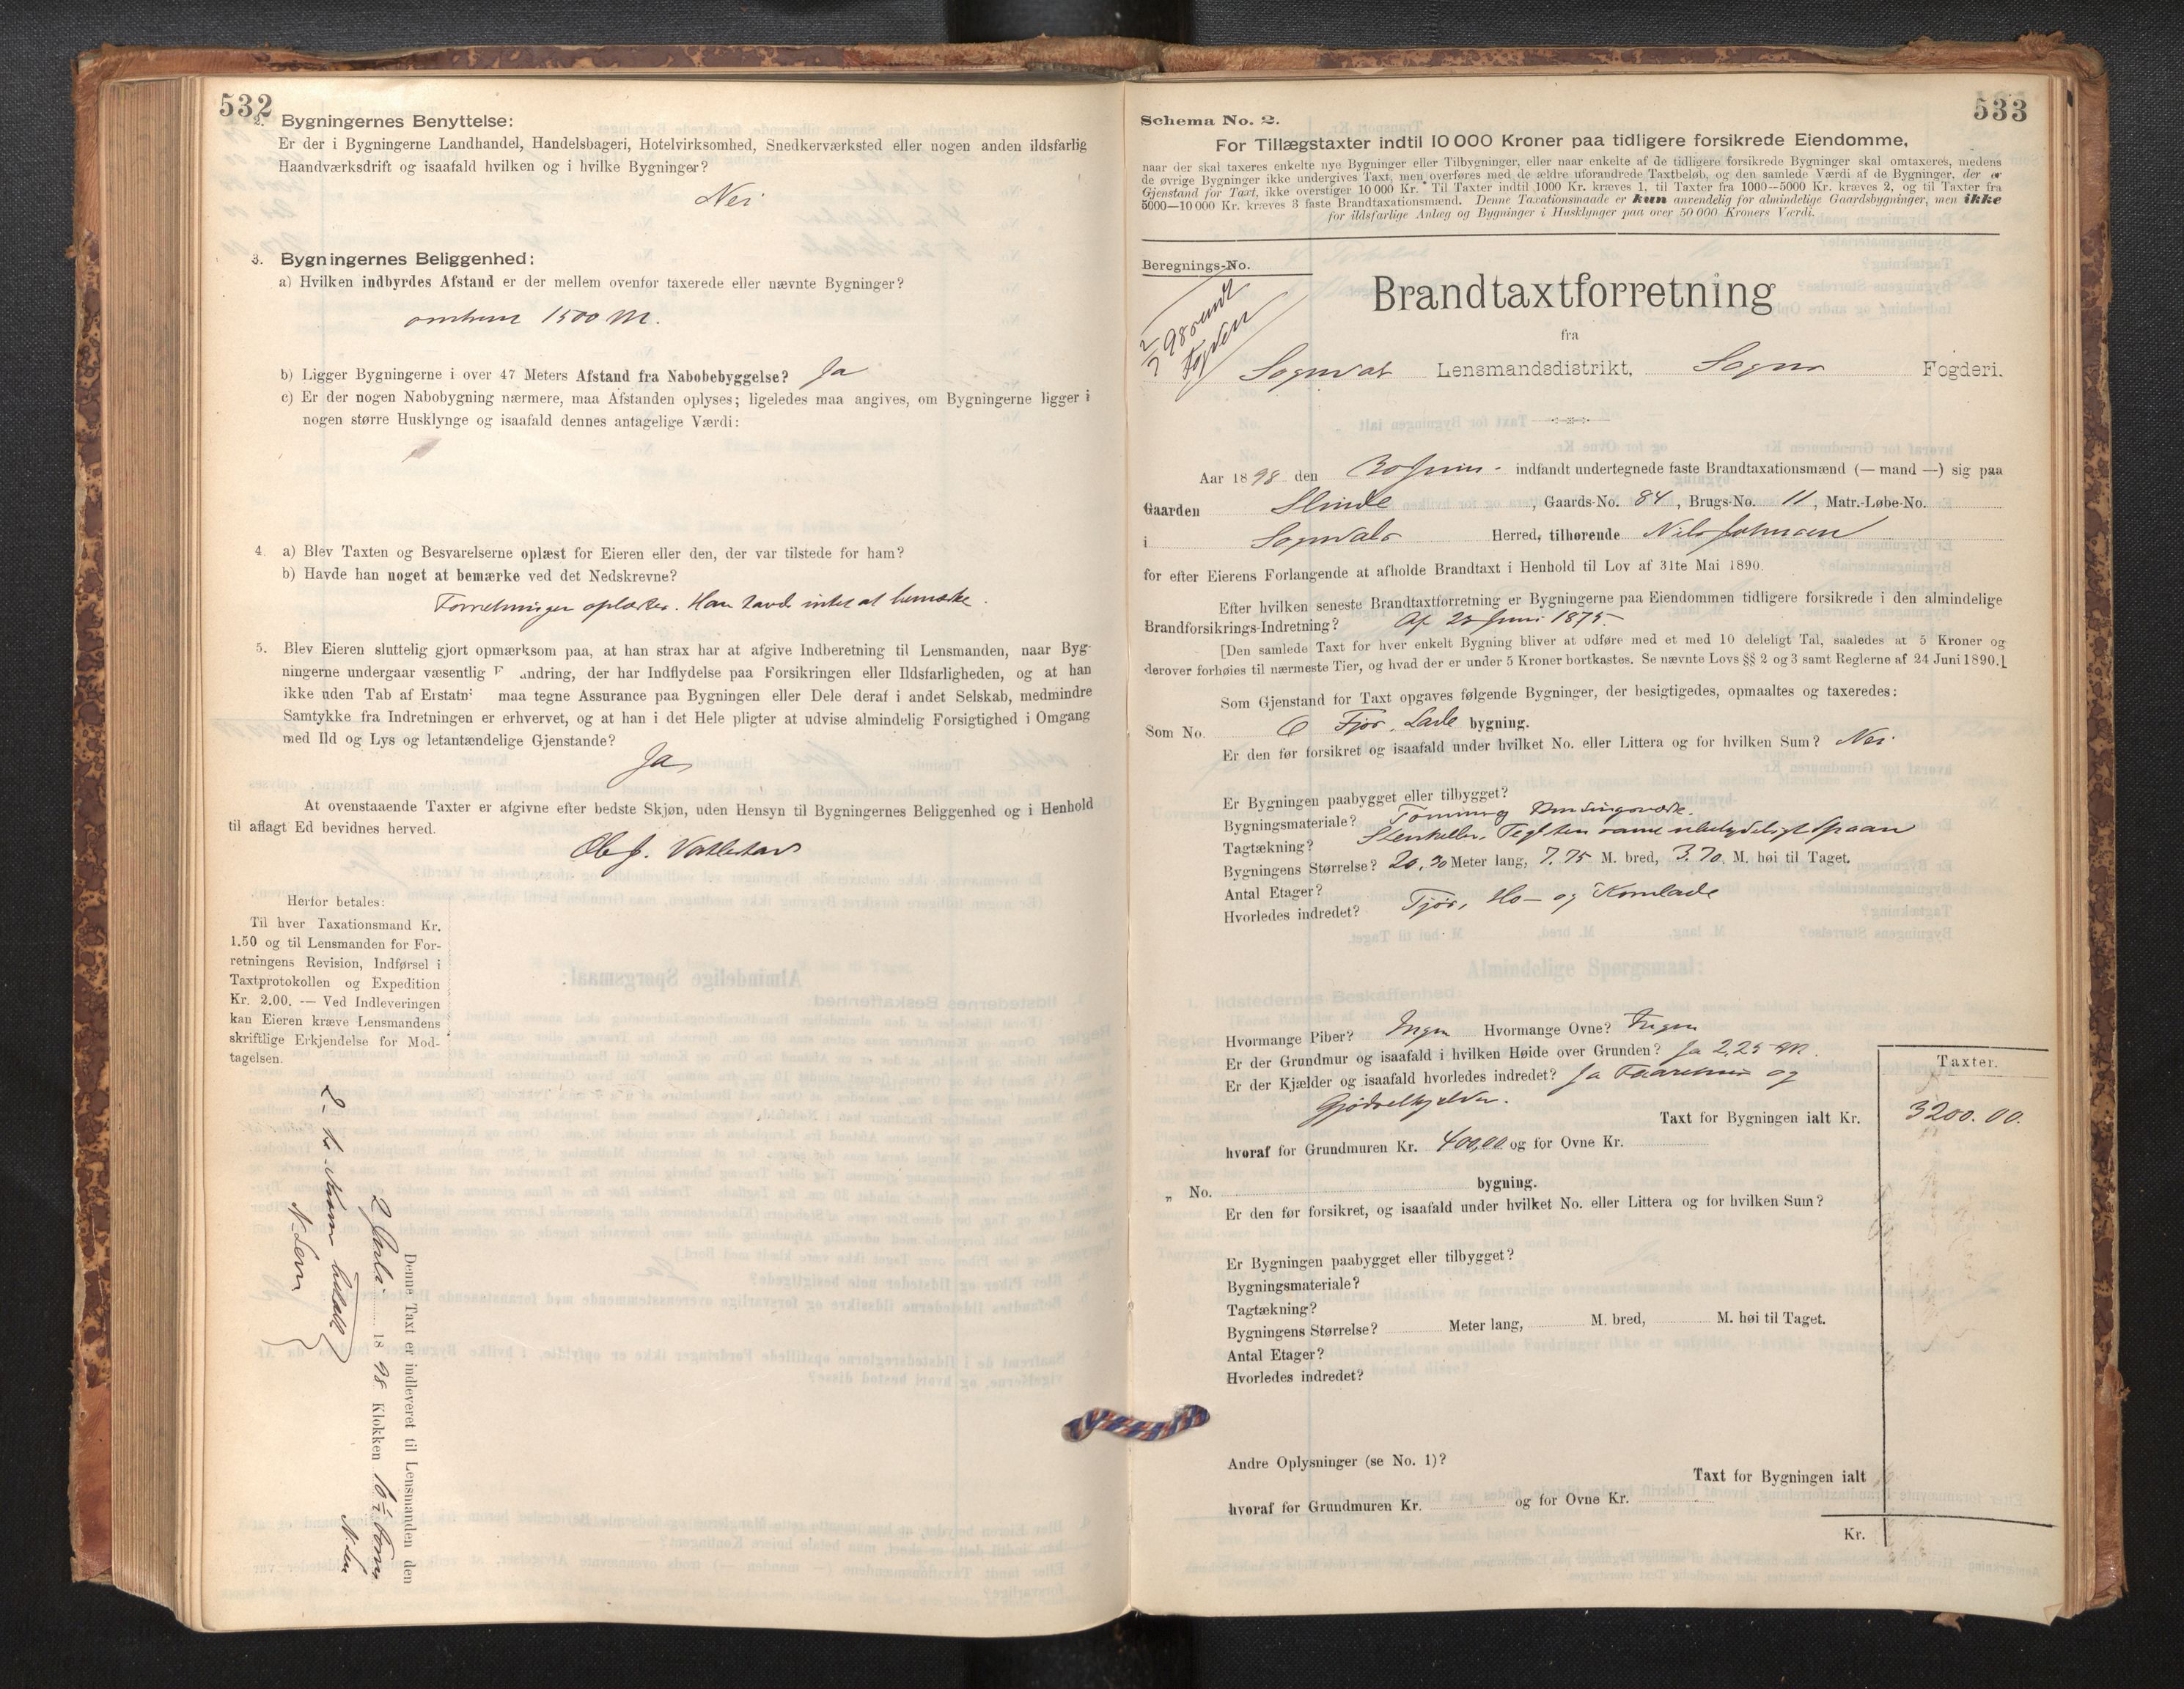 532
2. Bygningernes Benyttelse:
Er der i Bygningerne Landhandel, Handelsbageri, Hotelvirksomhed, Snedkerværksted eller nogen anden ildsfarlig
Haandværksdrift og isaafald hvilken og i hvilke Bygninger?
Nei
3. Bygningernes Beliggenhed:
a) Hvilken indbyrdes Afstand er der mellem ovenfor taxerede eller nævnte Bygninger?
omtrent 1500 M.
b) Ligger Bygningerne i over 47 Meters Afstand fra Nabobebyggelse? Ja
c) Er der nogen Nabobygning nærmere, maa Afstanden oplyses; ligeledes maa angives, om Bygningerne ligger i
nogen større Husklynge og isaafald dennes antagelige Værdi:
4. a) Blev Taxten og Besvarelserne oplæst for Eieren eller den, der var tilstede for ham?
b) Havde han noget at bemærke ved det Nedskrevne?
Forretningen oplæstes. Han havde intet at bemærke.
5. Blev Eieren sluttelig gjort opmærksom paa, at han strax har at afgive Indberetning til Lensmanden, naar Byg-
ningerne undergaar væsentlig F andring, der har Indflydelse paa Forsikringen eller Ildsfarligheden, og at han
ikke uden Tab af Erstatn maa tegne Assurance paa Bygningen eller Dele deraf i andet Selskab, medmindre
Samtykke fra Indretningen er erhvervet, og at han i det Hele pligter at udvise almindelig Forsigtighed i Omgang
med Ild og Lys og letantændelige Gjenstande?
Ja
At ovenstaaende Taxter er afgivne efter bedste Skjøn, uden Hensyn til Bygningernes Beliggenhed og i Henhold
til aflagt Ed bevidnes herved.
Ole J.
Herfor betales:
Til hver Taxationsmand Kr.
1.50 og til Lensmanden for For-
retningens Revision, Indførsel i
Taxtprotokollen og Expedition
Kr. 2.00. — Ved Indleveringen
kan Eieren kræve Lensmandens
skriftlige Erkjendelse for Mod-
tagelsen.
Denne Taxt er indleveret til Lensmanden den
2 Juli 1898 Klokken
533
Schema No. 2.
For Tillægstaxter indtil 10 000 Kroner paa tidligere forsikrede Eiendomme,
naar der skal taxeres enkelte nye Bygninger eller Tilbygninger, eller naar enkelte af de tidligere forsikrede Bygninger skal omtaxeres, medens
de øvrige Bygninger ikke undergives Taxt, men overføres med de ældre uforandrede Taxtbeløb, og den samlede Værdi af de Bygninger, der er
Gjenstand for Taxt, ikke overstiger 10 000 Kr. Til Taxter indtil 1000 Kr. kræves 1, til Taxter fra 1000—5000 Kr. kræves 2, og til Taxter fra
5000—10 000 Kr. kræves 3 faste Brandtaxationsmænd. Denne Taxationsmaade er kun anvendelig for almindelige Gaardsbygninger, men ikke
for ildsfarlige Anlæg og Bygninger i Husklynger paa over 50 000 Kroners Værdi.
Beregnings-No.
Brandtaxtforretning
fra
Sogndal Lensmandsdistrikt, Sogns Fogderi.
Aar 1898 den 30 Juni indfandt undertegnede faste Brandtaxationsmænd (— mand —) sig paa
Gaarden Slinde, Gaards-No. 84, Brugs-No. 11, Matr.-Løbe-No.
i Sogndals Herred, tilhørende Nils Johnsen
for efter Eierens Forlangende at afholde Brandtaxt i Henhold til Lov af 31te Mai 1890.
Efter hvilken seneste Brandtaxtforretning er Bygningerne paa Eiendommen tidligere forsikrede i den almindelige
Brandforsikrings-Indretning? Af 25 Juni 1875.
[Den samlede Taxt for hver enkelt Bygning bliver at udføre med et med 10 deleligt Tal, saaledes at 5 Kroner og
derover forhøies til nærmeste Tier, og hvad der er under 5 Kroner bortkastes. Se nævnte Lovs §§ 2 og 3 samt Reglerne af 24 Juni 1890.]
Som Gjenstand for Taxt opgaves følgende Bygninger, der besigtigedes, opmaaltes og taxeredes:
Som No. 6 Fjøs, Lade bygning.
Er den før forsikret og isaafald under hvilket No. eller Littera og for hvilken Sum? Nei.
Er Bygningen paabygget eller tilbygget?
Bygningsmateriale? Tømmer og Bindingsværk.
Tagtækning? Stenheller, Teglsten samt ubetydeligt Spaan
Bygningens Størrelse? 20,30 Meter lang, 7.75 M. bred, 3.70. M. høi til Taget.
Antal Etager?
Hvorledes indredet? Fjøs, Hø- og Kornlade
Hvormange Piber? Ingen Hvormange Ovne? Ingen
Er der Grundmur og isaafald i hvilken Høide over Grunden? Ja 2,25 M.
Er der Kjælder og isaafald hvorledes indredet? Ja Faarehus og
Gjødselkjelder.
Taxter.
Taxt for Bygningen ialt Kr. 3200.00.
hvoraf for Grundmuren Kr. 400,00 og for Ovne Kr.
„ No. bygning.
Er den før forsikret, og isaafald under hvilket No. eller Littera og for hvilken Sum?
Er Bygningen paabygget eller tilbygget?
Bygningsmateriale?
Tagtækning?
Bygningens Størrelse? Meter lang, M. bred, M. høi til Taget.
Antal Etager?
Hvorledes indredet?
Andre Oplysninger (se No. 1)?
Taxt for Bygningen ialt
hvoraf for Grundmuren Kr. og for Ovne Kr.
Kr.